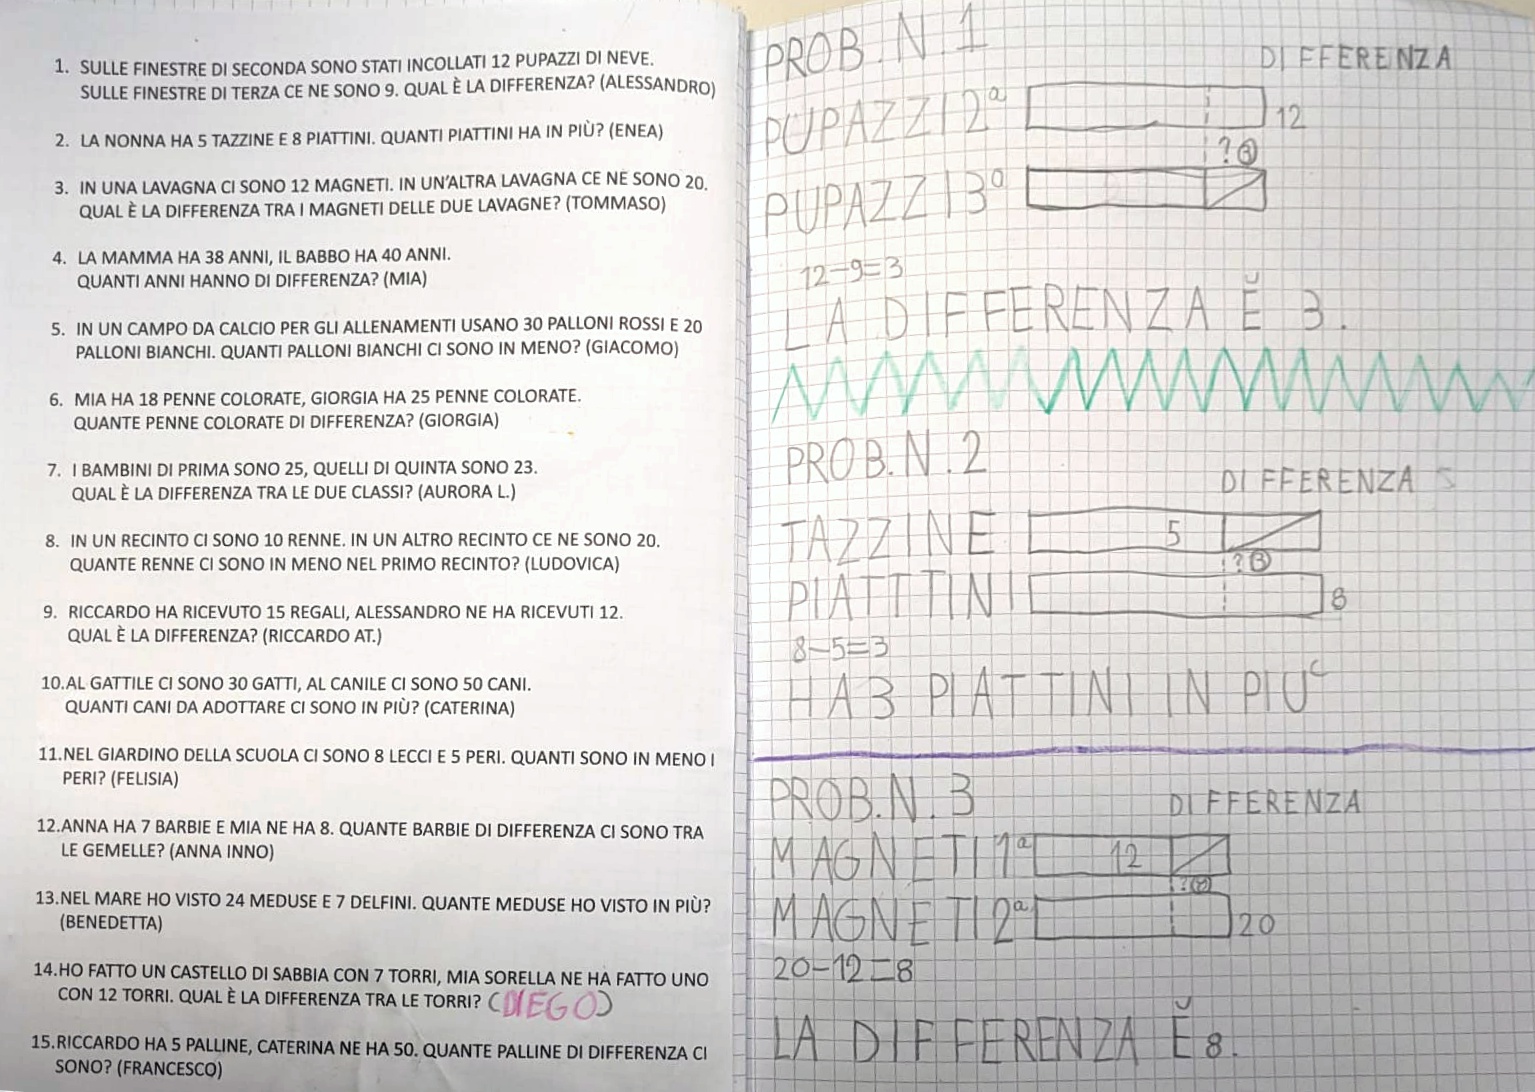 1. SULLE FINESTRE DI SECONDA SONO STATI INCOLLATI 12 PUPAZZI DI NEVE.
SULLE FINESTRE DI TERZA CE NE SONO 9. QUAL È LA DIFFERENZA? (ALESSANDRO)
2. LA NONNA HA 5 TAZZINE E 8 PIATTINI. QUANTI PIATTINI HA IN PIÙ? (ENEA)
3. IN UNA LAVAGNA CI SONO 12 MAGNETI. IN UN'ALTRA LAVAGNA CE NE SONO 20.
QUAL È LA DIFFERENZA TRA I MAGNETI DELLE DUE LAVAGNE? (TOMMASO)
4. LA MAMMA HA 38 ANNI, IL BABBO HA 40 ANNI.
QUANTI ANNI HANNO DI DIFFERENZA? (MIA)
5. IN UN CAMPO DA CALCIO PER GLI ALLENAMENTI USANO 30 PALLONI ROSSI E 20
PALLONI BIANCHI. QUANTI PALLONI BIANCHI CI SONO IN MENO? (GIACOMO)
6. MIA HA 18 PENNE COLORATE, GIORGIA HA 25 PENNE COLORATE.
QUANTE PENNE COLORATE DI DIFFERENZA? (GIORGIA)
7. I BAMBINI DI PRIMA SONO 25, QUELLI DI QUINTA SONO 23.
QUAL È LA DIFFERENZA TRA LE DUE CLASSI? (AURORA L.)
8. IN UN RECINTO CI SONO 10 RENNE. IN UN ALTRO RECINTO CE NE SONO 20.
QUANTE RENNE CI SONO IN MENO NEL PRIMO RECINTO? (LUDOVICA)
9. RICCARDO HA RICEVUTO 15 REGALI, ALESSANDRO NE HA RICEVUTI 12.
QUAL È LA DIFFERENZA? (RICCARDO AT.)
10.AL GATTILE CI SONO 30 GATTI, AL CANILE CI SONO 50 CANI.
QUANTI CANI DA ADOTTARE CI SONO IN PIÙ? (CATERINA)
11.NEL GIARDINO DELLA SCUOLA CI SONO 8 LECCI E 5 PERI. QUANTI SONO IN MENO I
PERI? (FELISIA)
12.ANNA HA 7 BARBIE E MIA NE HA 8. QUANTE BARBIE DI DIFFERENZA CI SONO TRA
LE GEMELLE? (ANNA INNO)
13.NEL MARE HO VISTO 24 MEDUSE E 7 DELFINI. QUANTE MEDUSE HO VISTO IN PIÙ?
(BENEDETTA)
14.HO FATTO UN CASTELLO DI SABBIA CON 7 TORRI, MIA SORELLA NE HA FATTO UNO
CON 12 TORRI. QUAL È LA DIFFERENZA TRA LE TORRI? (DIEGO)
15.RICCARDO HA 5 PALLINE, CATERINA NE HA 50. QUANTE PALLINE DI DIFFERENZA CI
SONO? (FRANCESCO)
PROB. N. 1
DIFFERENZA
PUPAZZI 2ª 12
? 3
PUPAZZI 3ª
12-9=3
LA DIFFERENZA Ĕ 3.
PROB. N. 2
DIFFERENZA
TAZZINE 5
? 3
PIATTTINI 8
8-5=3
HA 3 PIATTINI IN PIU
PROB. N. 3
DIFFERENZA
MAGNETI 1ª 12
?
MAGNETI 2ª 20
20-12=8
LA DIFFERENZA Ĕ 8.